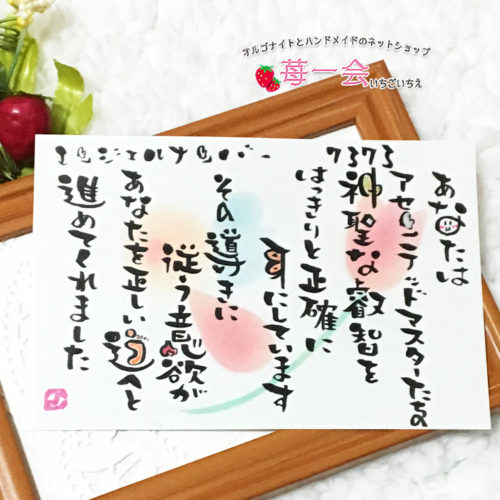 オルゴナイトとハンドメイドのネットショップ
苺一会
いちごいちえ
エンジェルナンバー 7373
あなたは
アセンデッドマスターたちの
神聖な叡智を
はっきりと正確に
耳にしています
その導きに
従う意欲が
あなたを正しい道へと
進めてくれました